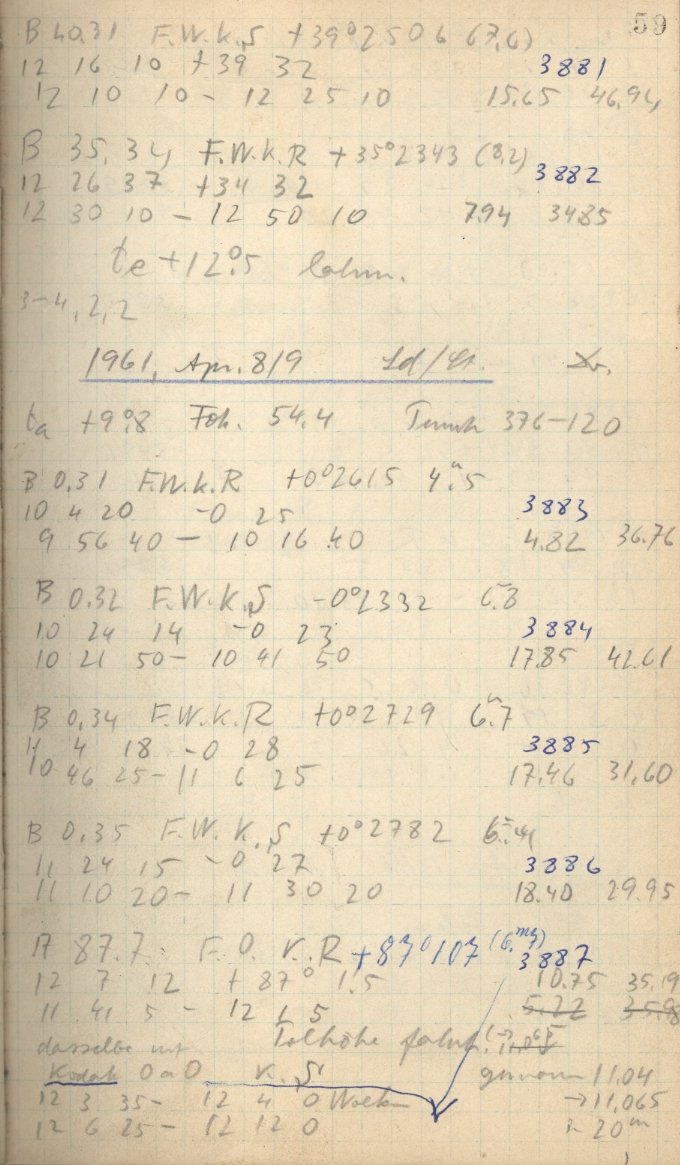 59
B 40.31 F.W.K.S +39°2506 (7,6)
12 16 10 +39 32 3881
12 10 10 – 12 25 10 15.65 46.94
B 35,34 F.W.K.R +35°2343 (8,2)
12 26 37 +34 32 3882
12 30 10 – 12 50 10 7.94 34.85
te +12°.5
3–4, 2, 2
1961, Apr. 8/9 Ld/
ta +9°.8 Fok. 54.4 376–120
B 0.31 F.W.K.R +0°2615 4.5
10 4 20 -0 25 3883
9 56 40 – 10 16 40 4.82 36.76
B 0.32 F.W.K.S -0°2332 6.3
10 24 14 -0 23 3884
10 21 50 – 10 41 50 17.85 42.61
B 0.34 F.W.K.R +0°2729 6.7
11 4 18 -0 28 3885
10 46 25 – 11 6 25 17.46 31.60
B 0.35 F.W.K.S +0°2782
11 24 15 -0 27 3886
11 10 20 – 11 30 20 18.40 29.95
A 87.7 F.O.K.R +87°107 3887
12 7 12 +87° 1.5 10.75 35.19
11 41 5 – 12 1 5 5.22
dasselbe mit Polhöhe
Kodak O a O K.S 11.04
12 3 35 – 12 4 0 Wolken →11,065
12 6 25 – 12 12 0 20m